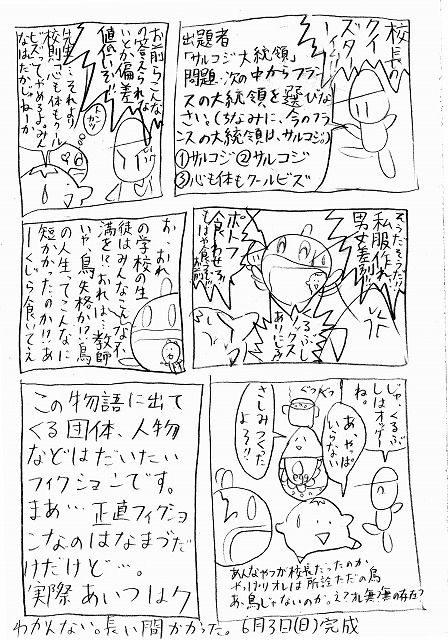 校長の
クイ
ズター
イム
出題者
「サルコジ大統領」
問題:次の中からフラン
スの大統領を選びな
さい。(ちなみに、今のフラ
ンスの大統領は、サルコジ。)
①サルコジ②サルコジ
③心も体もクールビズ
お前らこんな
の答えられな
いとか偏差
値低いぞ!!
先生…それす
校則「心も体もクール
ビズ」ってやめろよ。みん
なはだかじゃねーか
そうだそうだ!!
私服作れ
男女差別!!
ポトフ
食わせろ!!
お、おれ
の学校の生
徒はみんなこんな不
満を!?おれは…教師
いや、鳥失格か!?鳥
の人生ってこんなに
短かかったのか!!あ
ーくじら食いてえ
じゃ、くるぶ
しはオッケー
ね。
あ、やっぱ
いらない
ぐつぐつ
さしみつくった
よろ!!
あんなやつが校長だったのか
やっぱりオレは所詮ただの鳥
あ、鳥じゃないのか。え?オレ無の存在?
この物語に出て
くる団体、人物
などはだいたい
フィクションです。
まあ…正直フィクショ
ンなのはなまづだ
けだけど…。
実際あいつはク
わかんない。長い間かかった。6月3日(日)完成